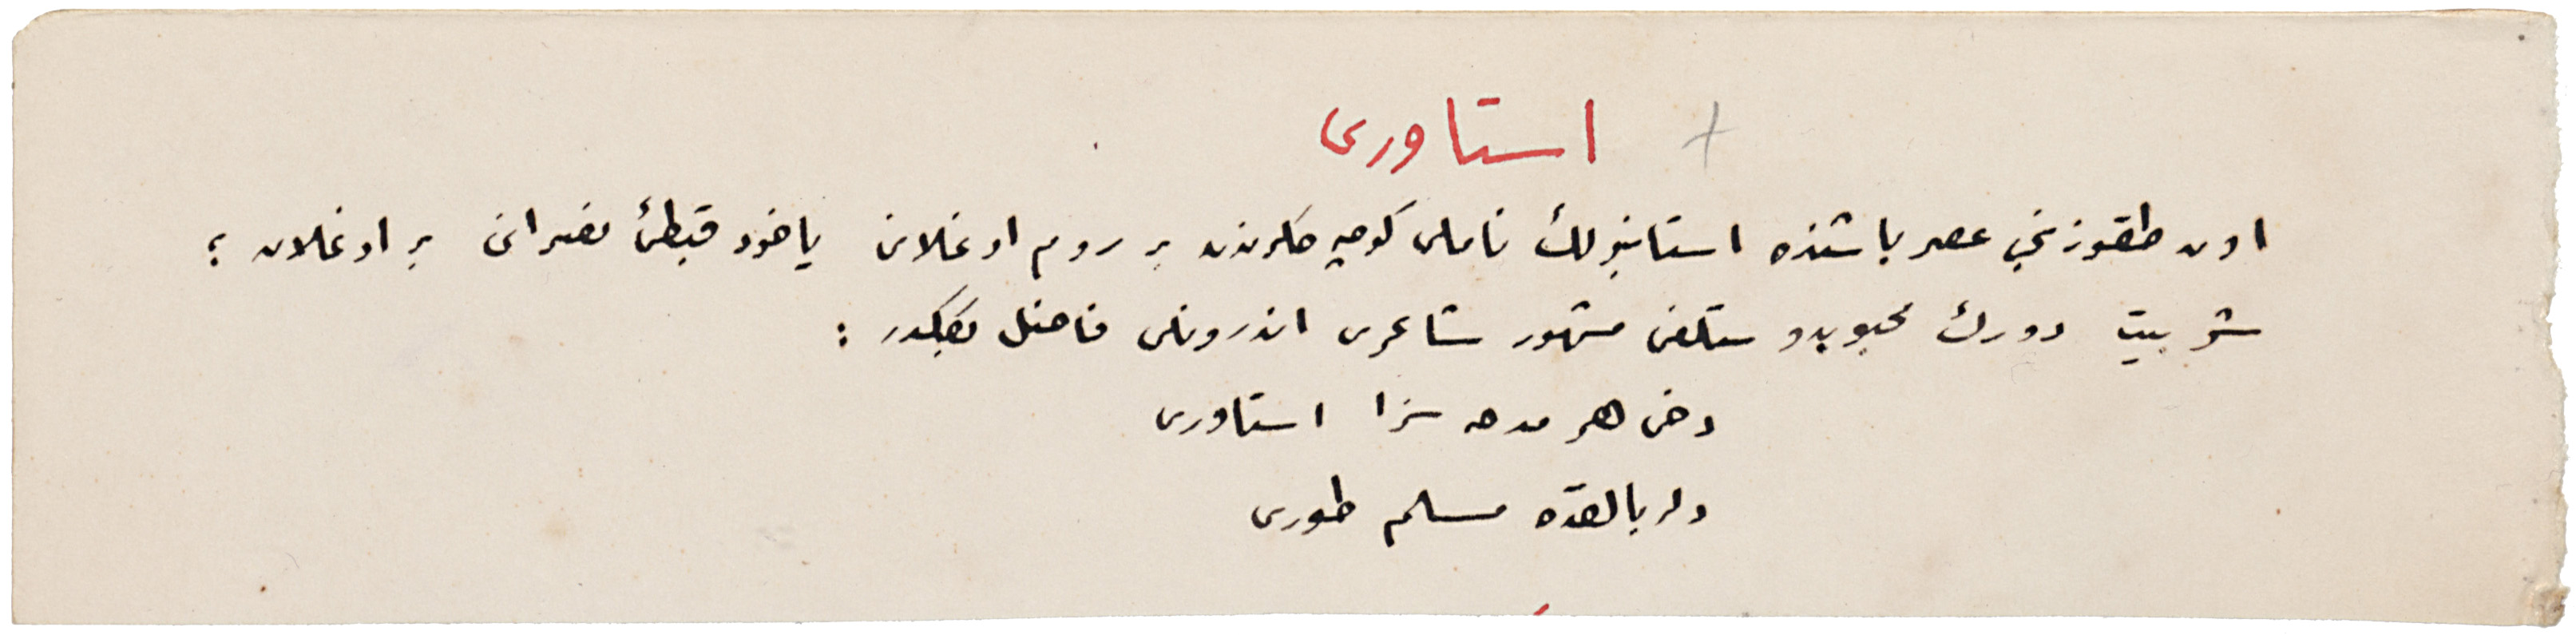 استاورى
اون طقوزنجى عصر باشنده استانبولك ناملى كوچكلرندن بر روم اوغلانى ياخود قبطئ نصرانى بر اوغلان ؛
شو بيت دورك محبوبدوستلغى مشهور شاعرى اندرونلى فاضل بكدر :
دخى هر مدحه سزا استاورى
دلربالقده مسلم طورى